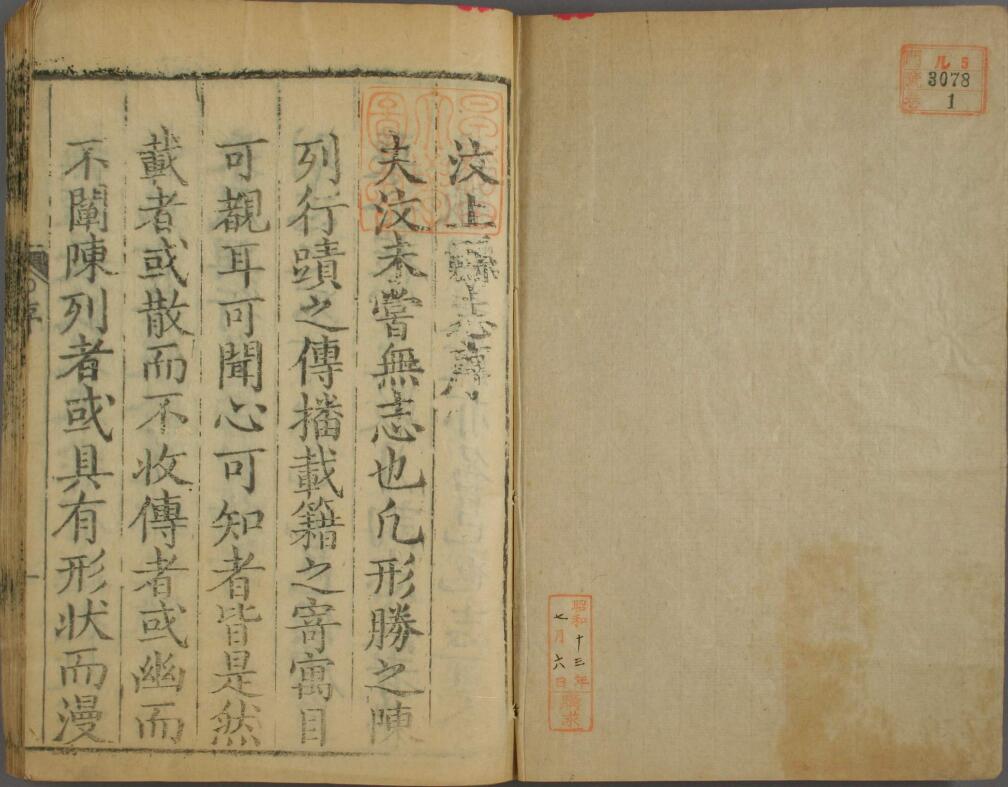 ル 5
3078
1
昭和十三年
七月六日
購求
汶上縣志序
夫汶未嘗無志也凡形勝之陳
列行蹟之傳播載籍之寄寓目
可覩耳可聞心可知者皆是然
載者或散而不收傳者或幽而
不闡陳列者或具有形狀而漫
序